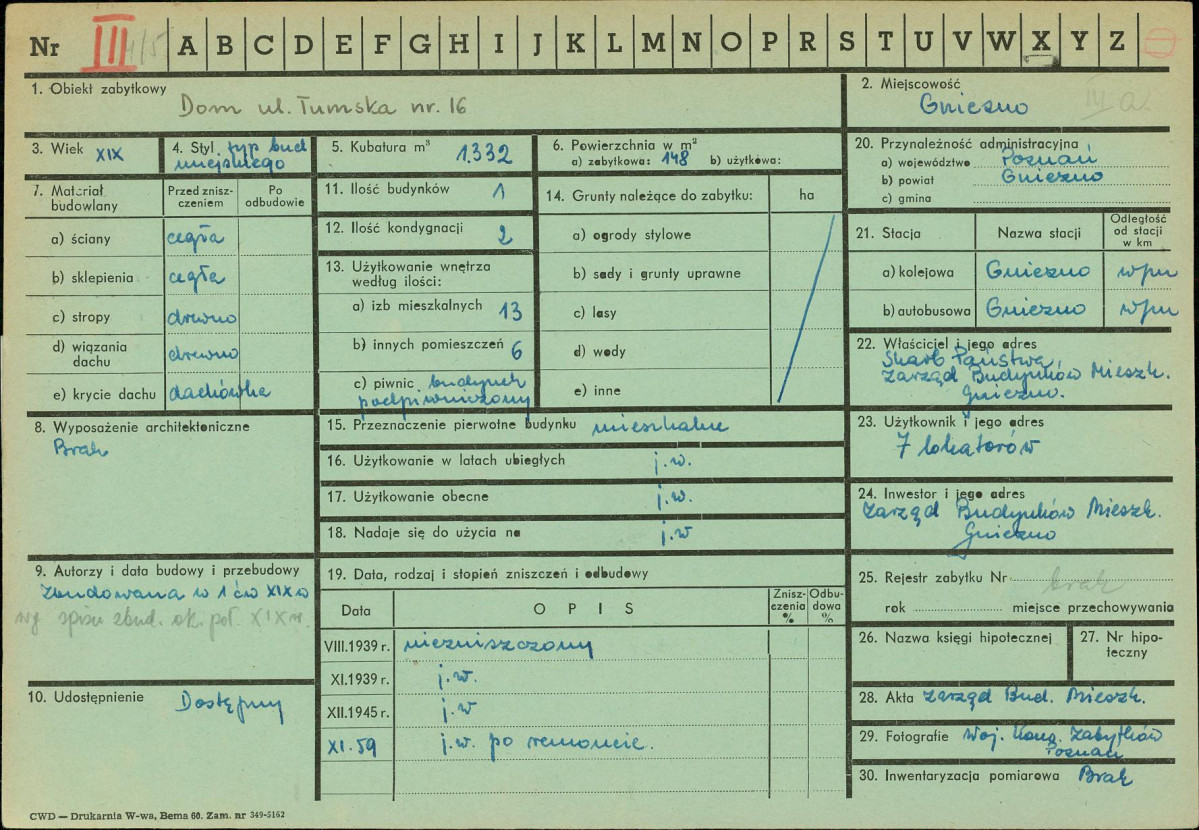 Nr III A B C D E F G H I J K L M N O P R S T U V W X Y Z
1. Obiekt zabytkowy
Dom ul. Tumska nr. 16
2. Miejscowość
Gniezno
3. Wiek XIX
4. Styl typ bud
miejskiego
5. Kubatura m³ 1.332
6. Powierzchnia w m²
a) zabytkowa: 148 b) użytkowa:
7. Materiał
budowlany
Przed znisz-
czeniem
Po
odbudowie
a) ściany cegła
b) sklepienia cegła
c) stropy drewno
d) wiązania
dachu drewno
e) krycie dachu dachówka
8. Wyposażenie architektoniczne
Brak
9. Autorzy i data budowy i przebudowy
Zbudowana w 1 ćw XIX w
wg spisu zbud. ok. poł. XIX w.
10. Udostępnienie Dostępny
11. Ilość budynków 1
12. Ilość kondygnacji 2
13. Użytkowanie wnętrza
według ilości:
a) izb mieszkalnych 13
b) innych pomieszczeń 6
c) piwnic budynek
podpiwniczony
14. Grunty należące do zabytku: ha
a) ogrody stylowe
b) sady i grunty uprawne
c) lasy
d) wody
e) inne
15. Przeznaczenie pierwotne budynku mieszkalne
16. Użytkowanie w latach ubiegłych j.w.
17. Użytkowanie obecne j.w.
18. Nadaje się do użycia na j.w
19. Data, rodzaj i stopień zniszczeń i odbudowy
Data
OPIS
Znisz-
czenia
%
Odbu-
dowa
%
VIII.1939 r. niezniszczony
XI.1939 r. j.w.
XII.1945 r. j.w
XI.59 j.w. po remoncie.
20. Przynależność administracyjna
a) województwo Poznań
b) powiat Gniezno
c) gmina
21. Stacja
Nazwa stacji
Odległość
od stacji
w km
a) kolejowa Gniezno
b) autobusowa Gniezno
22. Właściciel i jego adres
Skarb Państwa
Zarząd Budynków Mieszk.
Gniezno.
23. Użytkownik i jego adres
7 lokatorów
24. Inwestor i jego adres
Zarząd Budynków Mieszk.
Gniezno
25. Rejestr zabytku Nr brak
rok miejsce przechowywania
26. Nazwa księgi hipotecznej
27. Nr hipo-
teczny
28. Akta Zarząd Bud. Mieszk.
29. Fotografie Woj. Kons. Zabytków
Poznań
30. Inwentaryzacja pomiarowa Brak
CWD — Drukarnia W-wa, Bema 60. Zam. nr 349-5162